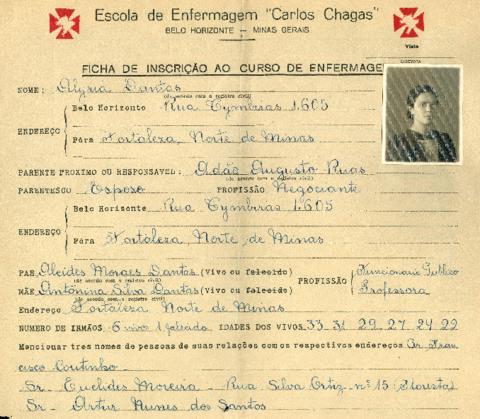 Escola de Enfermagem "Carlos Chagas"
BELO HORIZONTE — MINAS GERAIS
Visto
DIRETORA
FICHA DE INSCRIÇÃO AO CURSO DE ENFERMAGEM
NOME: Alysia Dantas
(de acordo com o registro civil)
Belo Horizonte Rua Tymbiras 1.605
ENDEREÇO
Fóra Fortaleza, Norte de Minas
PARENTE PROXIMO OU RESPONSAVEL: Adão Augusto Ruas
(de acordo com o registro civil)
PARENTESCO Esposo PROFISSÃO Negociante
Belo Horizonte Rua Tymbiras 1.605
ENDEREÇO
Fóra Fortaleza Norte de Minas
PAE Alcides Moraes Dantas (Vivo ou falecido) PROFISSÃO Funcionario Publico
(de acordo com o registro civil)
MÃE Antonina Silva Dantas (Vivo ou falecido) Professora
(de acordo com o registro civil)
Endereço Fortaleza Norte de Minas
NUMERO DE IRMÃOS 6 vivos 1 falecido IDADES DOS VIVOS 33 31 29 27 24 22
Mencionar tres nomes de pessoas de suas relações com os respectivos endereços Dr. Fran-
cisco Coutinho
Sr. Euclides Moreira – Rua Silva Ortiz nº 15 (Floresta)
Sr. Artur Nunes dos Santos